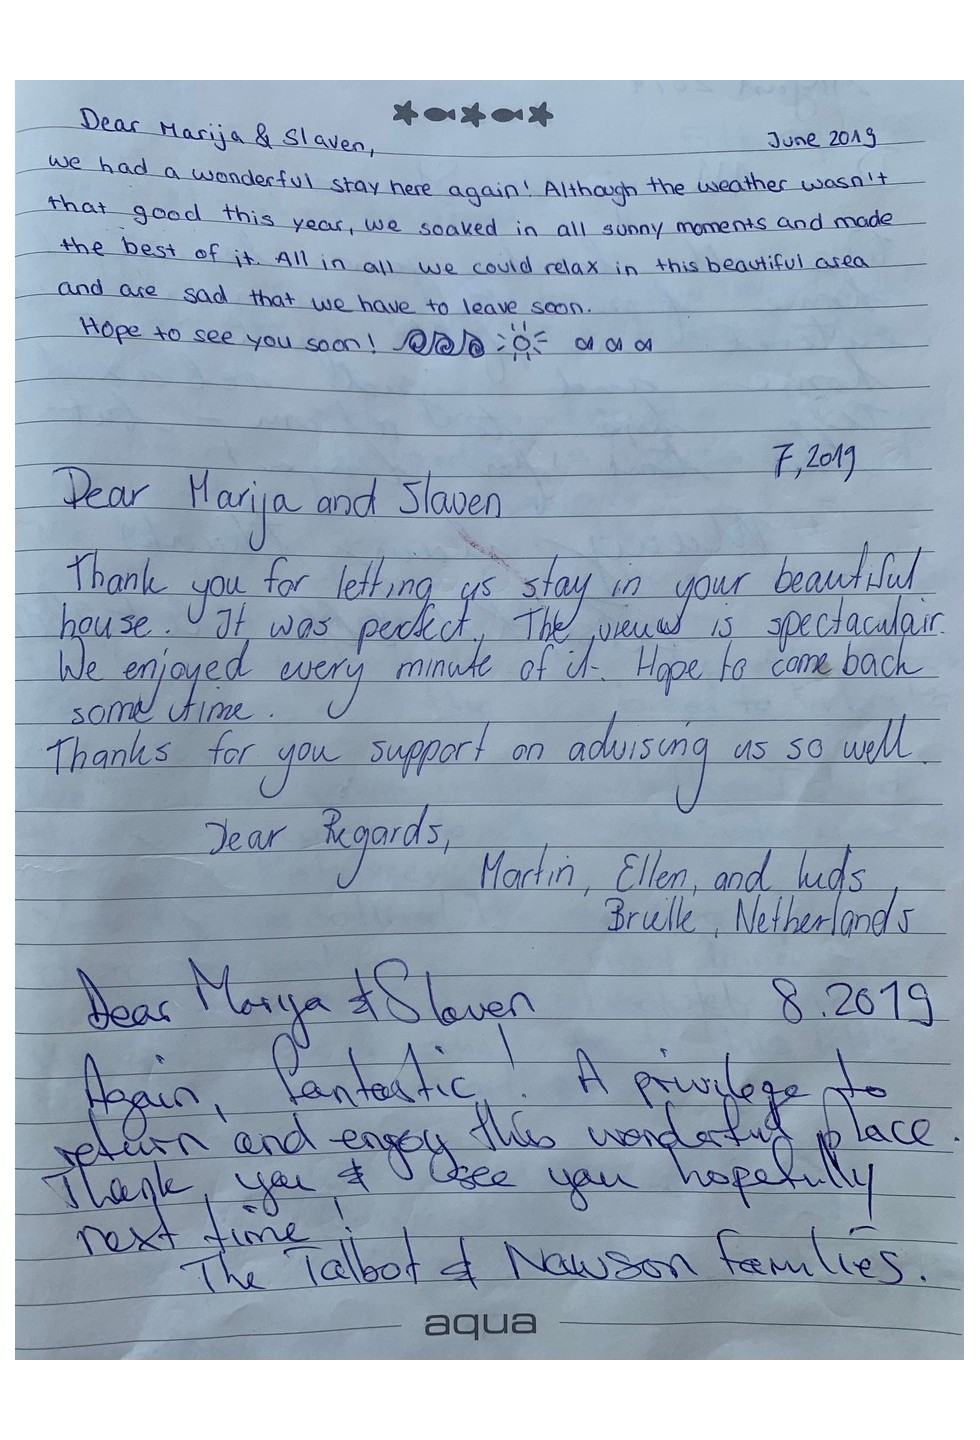 Dear Marija & Slaven,
June 2019
we had a wonderful stay here again! Although the weather wasn't
that good this year, we soaked in all sunny moments and made
the best of it. All in all we could relax in this beautiful area
and are sad that we have to leave soon.
Hope to see you soon!
7,2019
Dear Marija and Slaven
Thank you for letting us stay in your beautiful
house. It was perfect. The view is spectaculair.
We enjoyed every minute of it. Hope to come back
some time.
Thanks for you support on advising us so well.
Dear Regards,
Martin, Ellen, and
Brielle, Netherlands
Dear Marija & Slaven
8.2019
Again, fantastic! A privilege to
return and enjoy this wonderful place.
Thank you & see you hopefully
next time!
The Talbot & Nawson families.
aqua